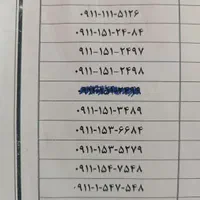 ۰۹۱۱-۱۱۱-۵۱۲۶
۰۹۱۱-۱۵۱-۲۴-۸۴
۰۹۱۱-۱۵۱-۲۴۹۷
۰۹۱۱-۱۵۱-۲۴۹۸
۰۹۱۱-۱۵۱-۳۴۸۹
۰۹۱۱-۱۵۳-۶۶۸۴
۰۹۱۱-۱۵۳-۵۲۷۹
۰۹۱۱-۱۵۴-۷۵۴۸
۰۹۱۱-۱-۵۴۷-۵۴۸